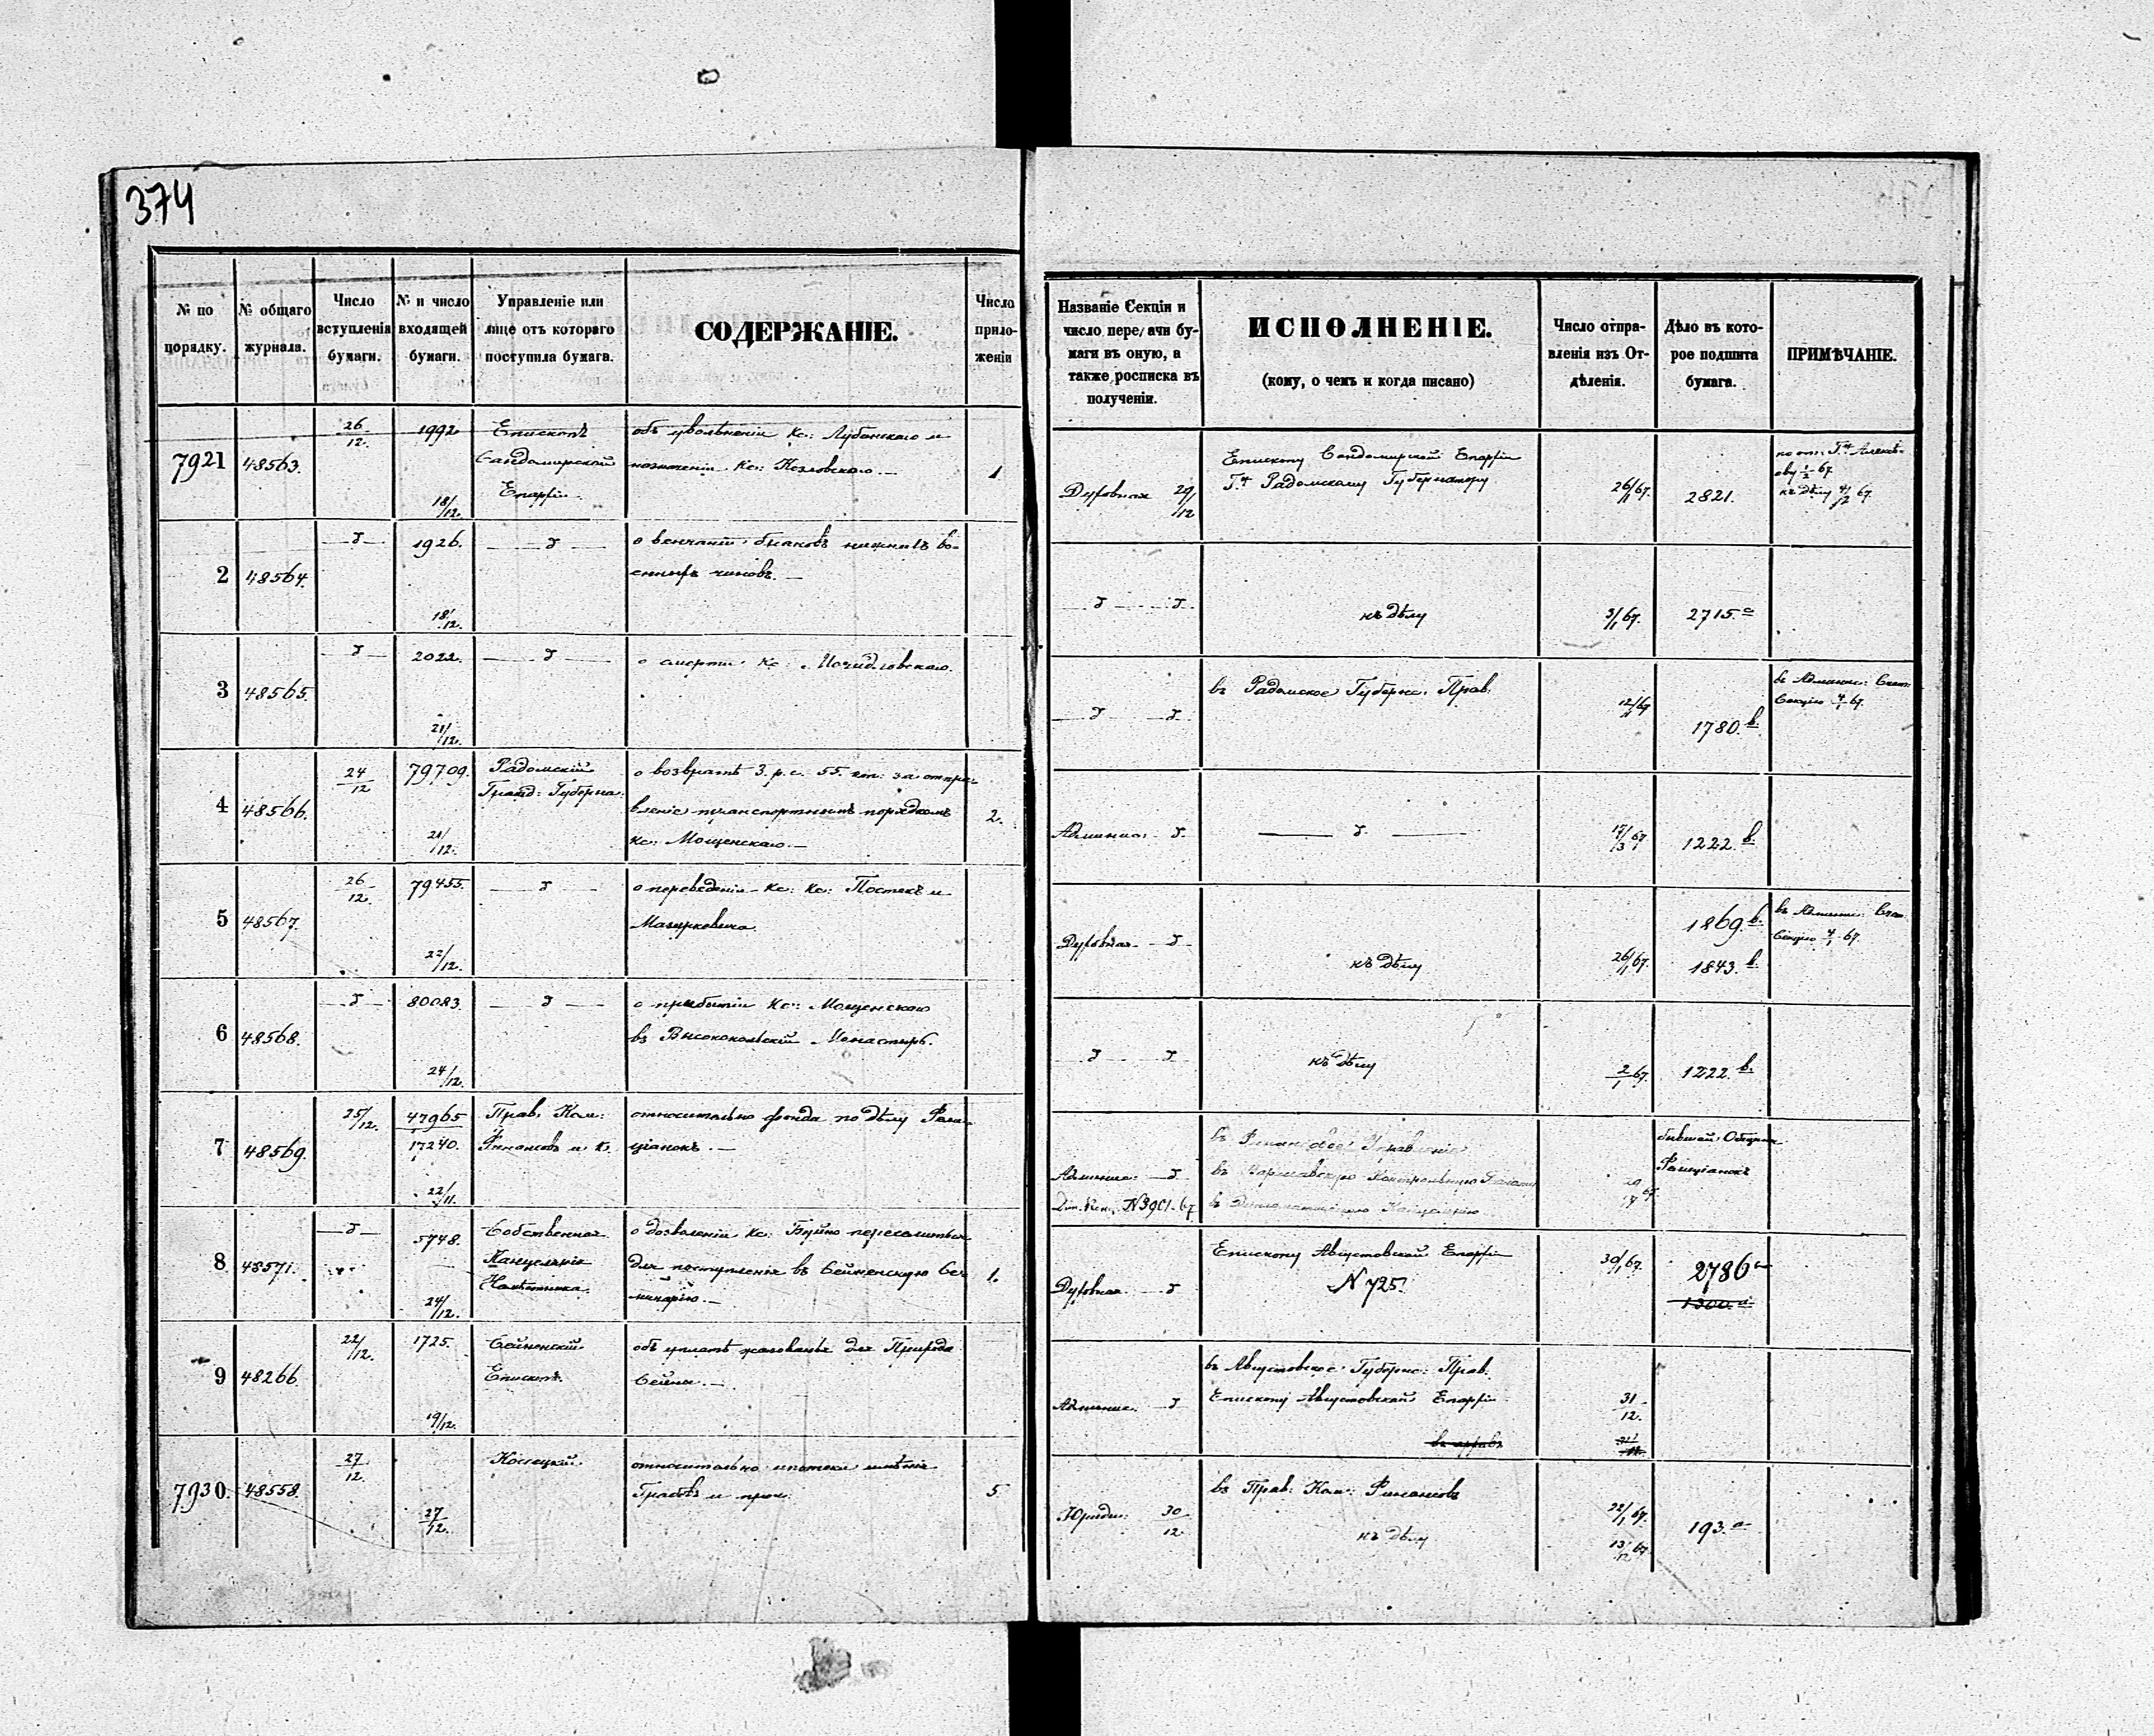 374
№ по порядку.
№ общаго журнала.
Число вступленія бумаги.
№ и число входящей бумаги.
Управленіе или лице отъ котораго поступила бумага.
СОДЕРЖАНІЕ.
Число приложеній
Названіе Секціи и число передачи бумаги въ оную, а также росписка въ полученіи.
ИСПОЛНЕНІЕ.
(кому, о чемъ и когда писано)
Число отправленія изъ Отдѣленія.
Дѣло въ которое подшита бумага.
ПРИМѢЧАНІЕ.
7921 48563. 26/12. 1992 18/12. Епископъ
Сандомирской
Епархіи.
объ увольненіи Кс: Лубанскаго и
назначеніи Кс: Козловскаго.— 1
Духовная 29/12
Епископу Сандомирской Епархіи
Г. Радомскому Губернатору
26/1 67. 2821.
къ дѣлу 67.
2 48564. 1926. 18/12.
о венчаніи браковъ нижнихъ во-
енныхъ чиновъ.—
къ дѣлу 3/1 67. 2715.
3 48565. 2022. 21/12.
о смерти Кс:
въ Радомское Губерн. Прав.
12/1 67 1780. в.
въ Админис: Счет:
Секцію 4/1 67.
4 48566. 24/12 79709. 21/12. Радомскій
Гражд: Губерна.
о возвратѣ 3. р. с. 55. коп: за отпра-
вленіе транспортнымъ порядкомъ
Кс: Мощенскаго.— 2.
Админис: 17/3 67 1222. в.
5 48567. 26/12. 79455. 22/12.
о переведеніи Кс: Кс: Постекъ и
Мазурковича.
Духовная
къ дѣлу 26/1 67. 1869. в.
1843. в.
въ Админис: Счет.
Секцію 4/1 67.
6 48568. 80083. 24/12.
о прибытіи Кс: Мощенскаго
въ Высококольскій Монастырь.
къ дѣлу 2/1 67. 1222. в.
7 48569. 25/12. 47965
17240. 22/11. Прав. Ком:
Финансовъ и К.
относительно фонда по дѣлу Фели-
ціанокъ.—
Админис:
№ 3901-67
въ Финансовое Управленіе
въ Варшавскую Контрольную Палату
въ Дипломатическую Канцелярію
бывшей Общины
Фелиціанокъ
8 48571. 5748. 24/12. Собственная
Канцелярія
Намѣстника.
о дозволеніи Кс: Буйно переселиться
для поступленія въ Сейненскую Се-
минарію.— 1.
Духовная
Епископу Августовской Епархіи
N 725.
30/1 67. 2786
1300.
9 48266. 22/12. 1725. 19/12. Сейненскій
Епископъ.
объ уплатѣ жалованья для
Сейны.—
Админис.
въ Августовское Губерн: Прав.
Епископу Августовской Епархіи
31/12.
7930. 48558. 27/12. 27/12.
относительно ипотеки имѣнія
Грабовъ и проч. 5
Юриди: 30/12
въ Прав: Ком: Финансовъ
къ дѣлу
22/1 67.
13/12 67
193. а